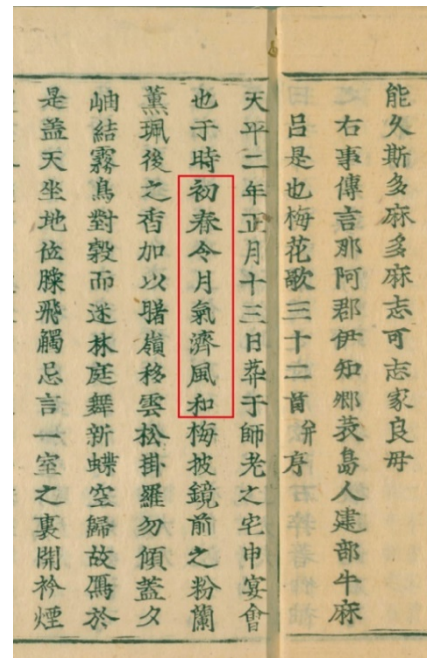 能久斯多麻多麻志可志家良毋
右事傳言那阿郡伊知鄉蓑島人建部牛麻
呂是也梅花歌三十二首并序
天平二年正月十三日萃于師老之宅申宴會
也于時初春令月氣淑風和梅披鏡前之粉蘭
薰珮後之香加以曙嶺移雲松掛羅勿傾盖夕
岫結霧鳥對縠而迷林庭舞新蝶空歸故鴈於
是盖天坐地位膝飛觴忘言一室之裏開衿煙